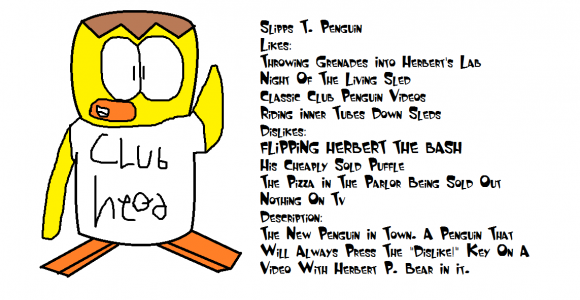 Club
head
Slipps T. Penguin
Likes:
Throwing Grenades into Herbert's Lab
Night Of The Living Sled
Classic Club Penguin Videos
Riding inner Tubes Down Sleds
Dislikes:
FLiPPiNG HERBERT THE BASH
His Cheaply Sold Puffle
The Pizza in The Parlor Being Sold Out
Nothing On Tv
Description:
The New Penguin in Town. A Penguin That
Will Always Press The "Dislike!" Key On A
Video With Herbert P. Bear in it.